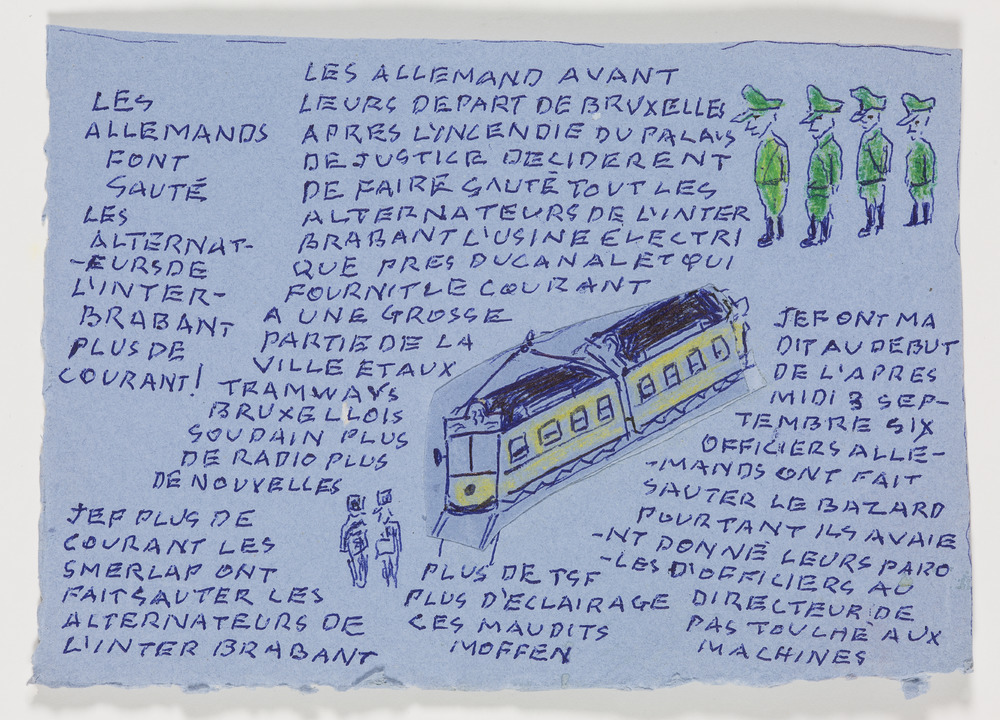 LES
ALLEMANDS
FONT
SAUTÉ
LES
ALTERNAT-
-EURS DE
L'INTER-
BRABANT
PLUS DE
COURANT!
LES ALLEMAND AVANT
LEURS DEPART DE BRUXELLES
APRES L'INCENDIE DU PALAIS
DE JUSTICE DECIDERENT
DE FAIRE SAUTÉ TOUT LES
ALTERNATEURS DE L'INTER
BRABANT L'USINE ELECTRI
QUE PRES DU CANAL ET QUI
FOURNIT LE COURANT
A UNE GROSSE
PARTIE DE LA
VILLE ET AUX
TRAMWAYS
BRUXELLOIS
SOUDAIN PLUS
DE RADIO PLUS
DE NOUVELLES
JEF PLUS DE
COURANT LES
SMERLAP ONT
FAIT SAUTER LES
ALTERNATEURS DE
L'INTER BRABANT
PLUS DE TSF
PLUS D'ECLAIRAGE
CES MAUDITS
MOFFEN
JEF ONT MA
DIT AU DEBUT
DE L'APRES
MIDI 3 SEP-
TEMBRE SIX
OFFICIERS ALLE-
-MANDS ONT FAIT
SAUTER LE BAZARD
POURTANT ILS AVAIE
-NT DONNÉ LEURS PARO
-LES D'OFFICIERS AU
DIRECTEUR DE
PAS TOUCHÉ AUX
MACHINES